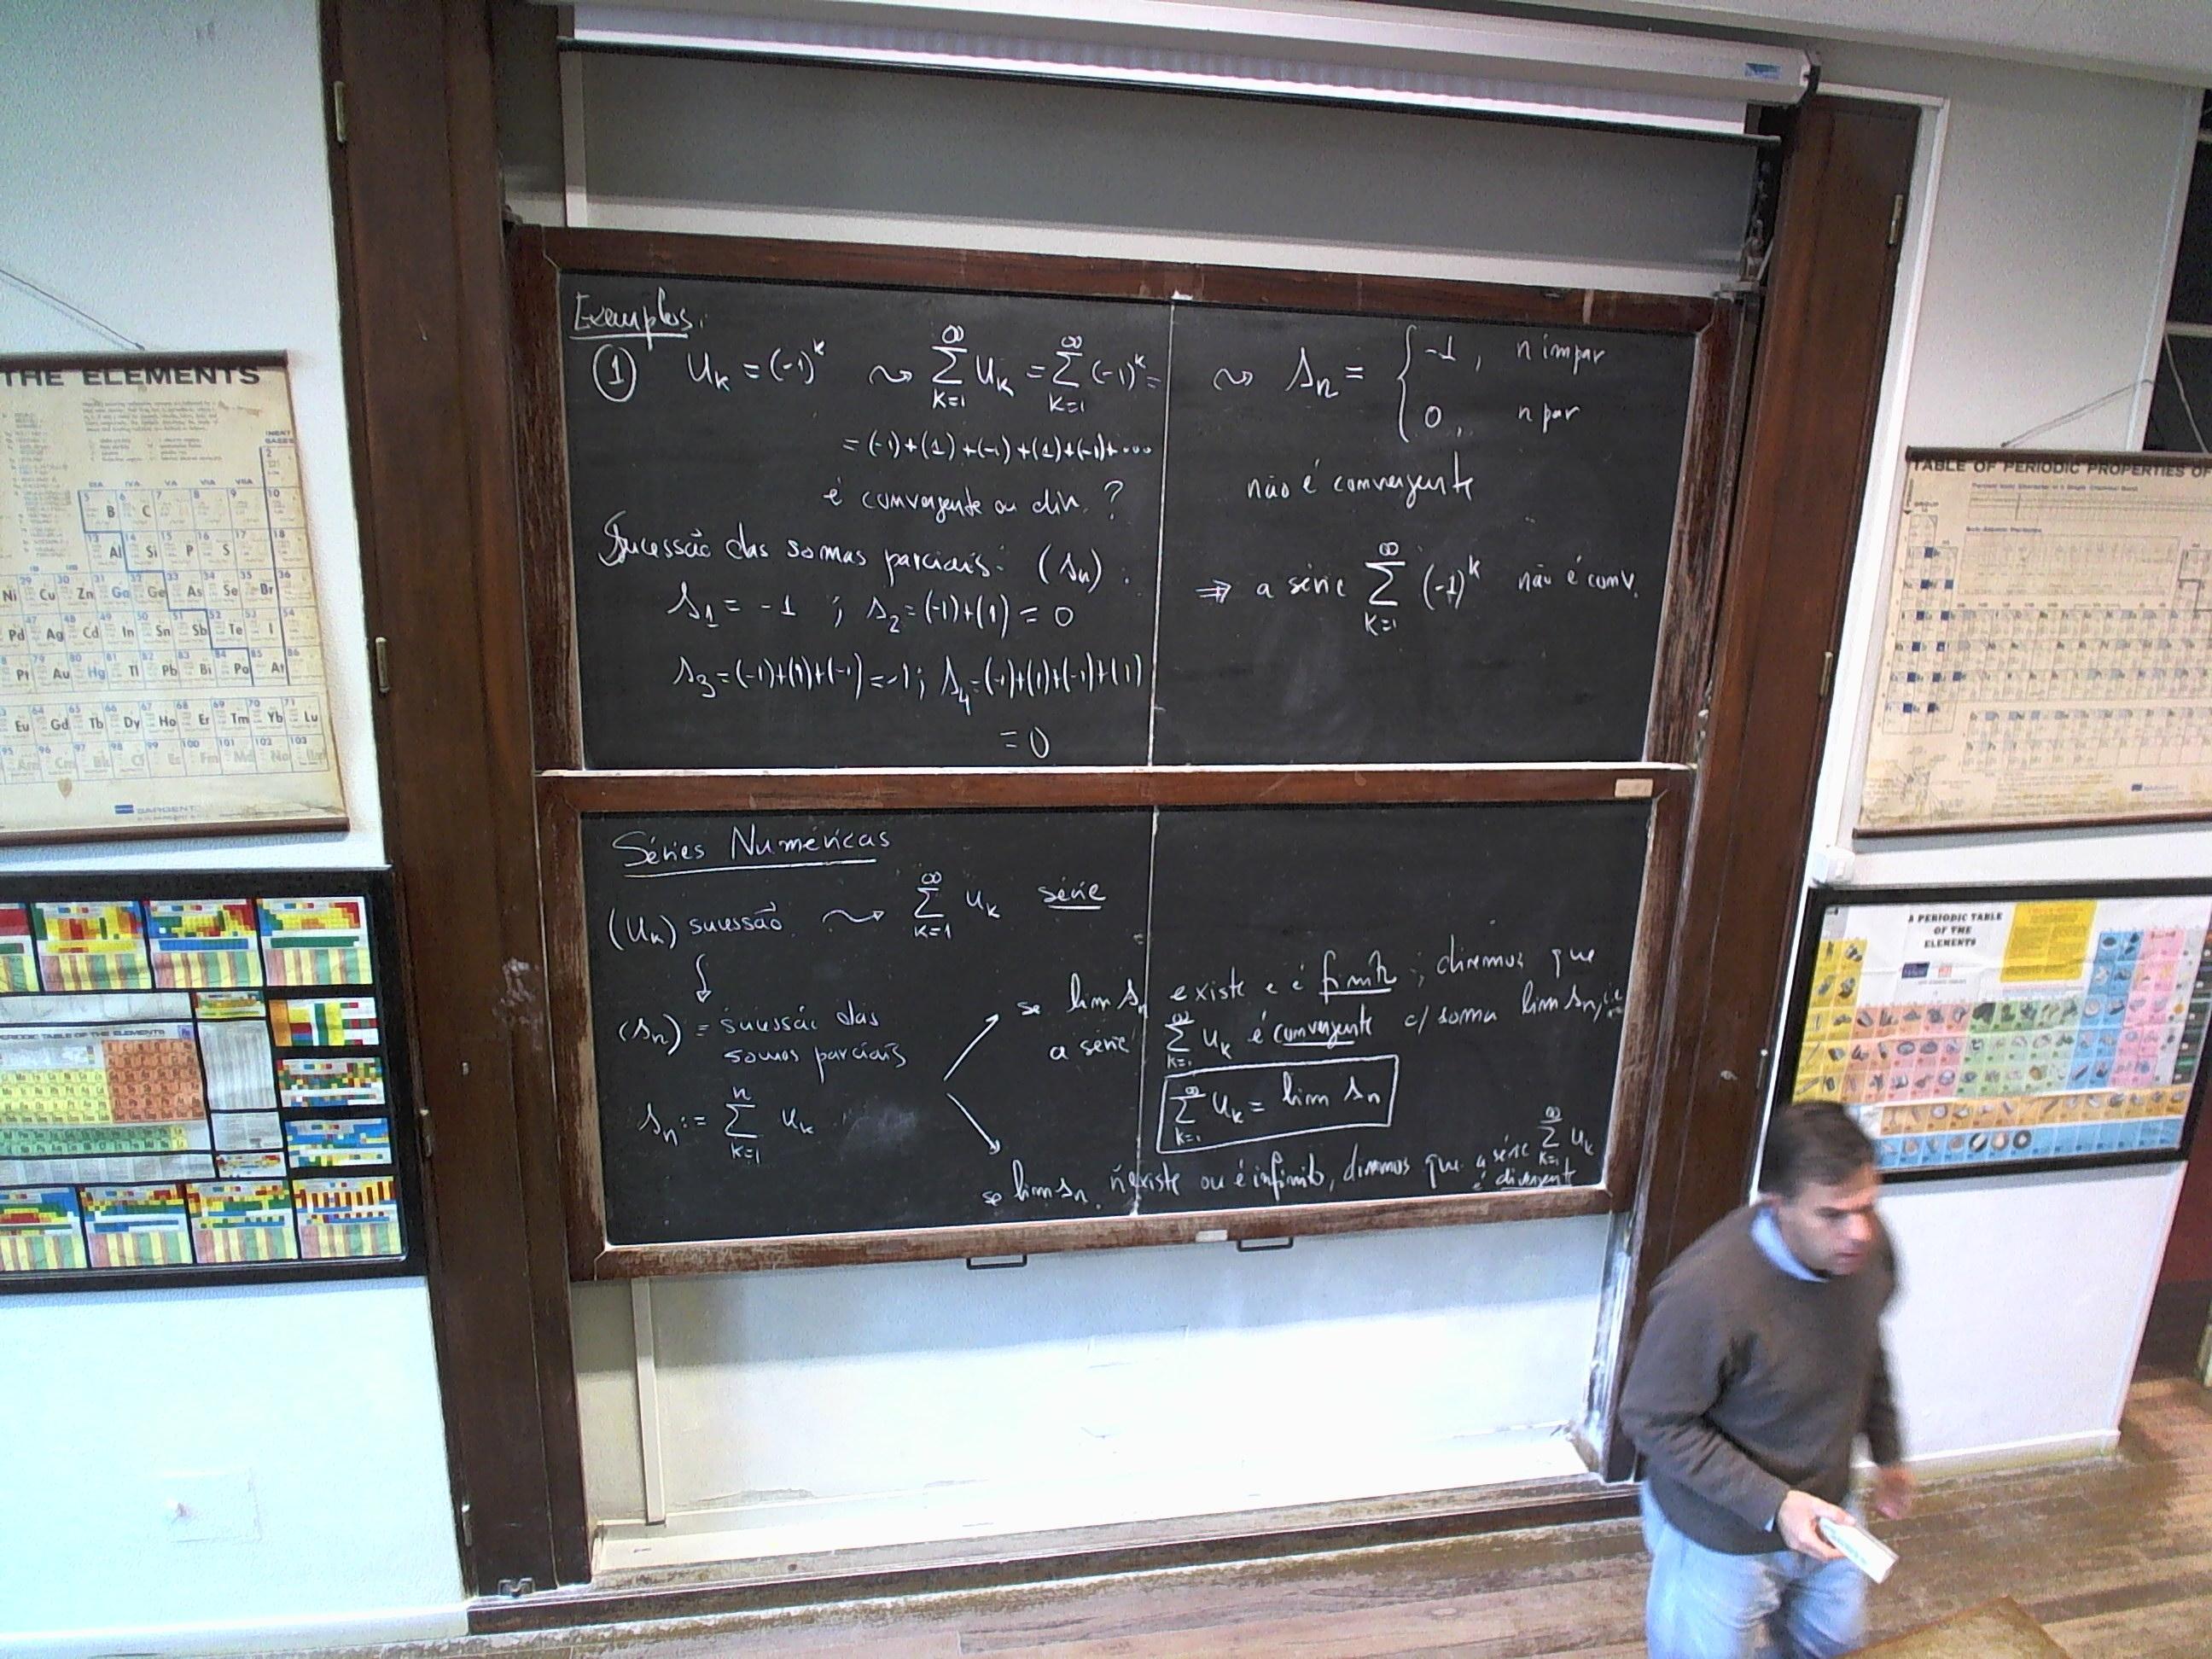 Exemplos:
① u_k = (-1)^k ⇝ ∑_{k=1}^∞ u_k = ∑_{k=1}^∞ (-1)^k =
= (-1)+(1)+(-1)+(1)+(-1)+....
é convergente ou div. ?
Sucessão das somas parciais: (s_n) :
s_1 = -1 ; s_2 = (-1)+(1) = 0
s_3 = (-1)+(1)+(-1) = -1 ; s_4 = (-1)+(1)+(-1)+(1)
= 0
⇝ s_n = { -1 , n impar
0 , n par
não é convergente
⇒ a série ∑_{k=1}^∞ (-1)^k não é conv.
Séries Numéricas
(u_k) sucessão ⇝ ∑_{k=1}^∞ u_k série
↓
(s_n) = sucessão das
somas parciais
s_n := ∑_{k=1}^n u_k
se lim s_n existe e é finito, diremos que
a série ∑_{k=1}^∞ u_k é convergente c/ soma lim s_n, i.e.
∑_{k=1}^∞ u_k = lim s_n
se lim s_n ñ existe ou é infinito, diremos que a série ∑_{k=1}^∞ u_k
é divergente
THE ELEMENTS
INERT
GASES
IIIA IVA VA VIA VIIA
B C
Al Si P S
Ni Cu Zn Ga Ge As Se Br
Pd Ag Cd In Sn Sb Te I
Pt Au Hg Tl Pb Bi Po At
Eu Gd Tb Dy Ho Er Tm Yb Lu
Am Cm Bk Cf Es Fm Md No
SARGENT
PERIODIC TABLE OF THE ELEMENTS
TABLE OF PERIODIC PROPERTIES OF
A PERIODIC TABLE
OF THE
ELEMENTS